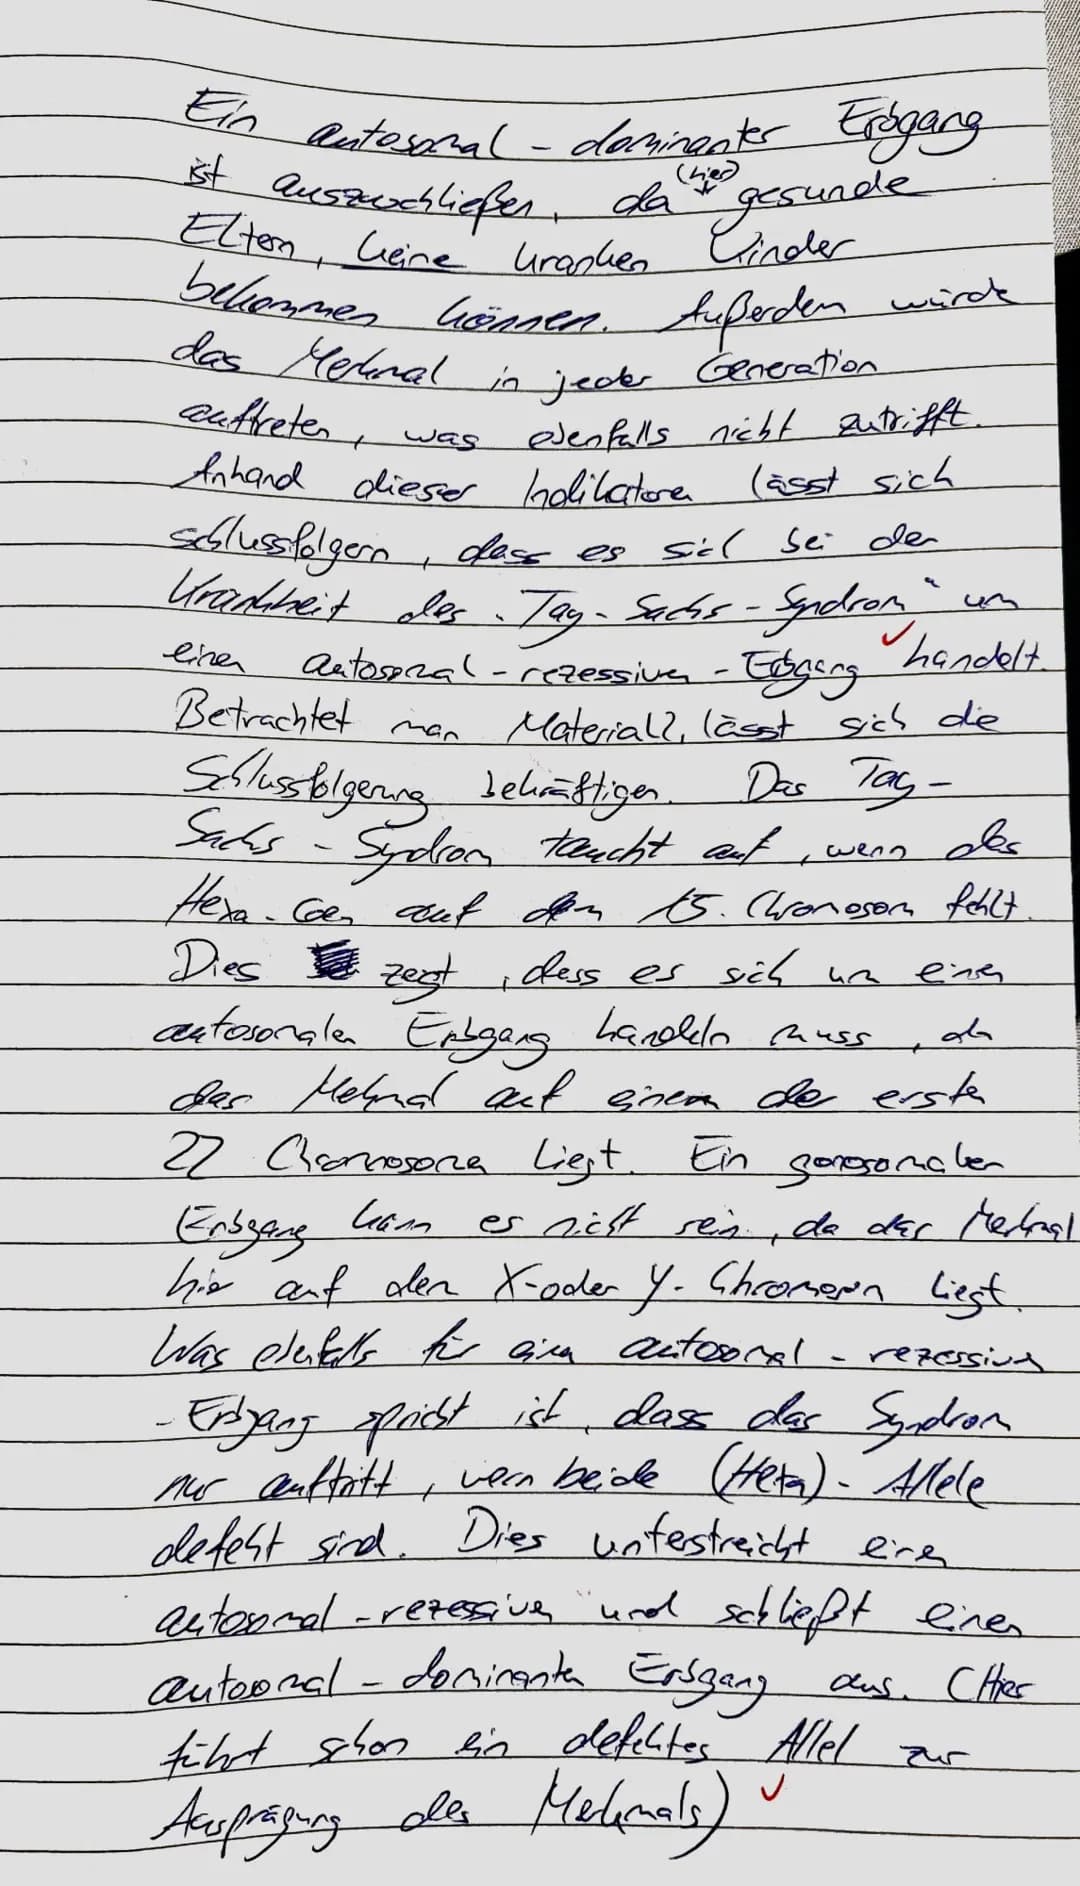 Ein autosomal - dominanter Erbgang
ist auszuschließen, da (hier) gesunde
Eltern, keine kranken Kinder
bekommen können. Außerdem würde
das Merkmal in jeder Generation
auftreten, was ebenfalls nicht zutrifft.
Anhand dieser Indikatoren lässt sich
schlussfolgern, dass es sich bei der
Krankheit des "Tay-Sachs-Syndrom" um
einen autosomal - rezessiven - Erbgang handelt.
Betrachtet man Material 2, lässt sich die
Schlussfolgerung bekräftigen. Das Tay-
Sachs - Syndrom taucht auf, wenn das
Hexa-Gen auf dem 15. Chromosom fehlt.
Dies zeigt, dass es sich um einen
autosomalen Erbgang handeln muss, da
das Merkmal auf einem der ersten
22 Chromosomen liegt. Ein gonosomaler
Erbgang kann es nicht sein, da das Merkmal
hier auf den X-oder Y-Chromosom liegt.
Was ebenfalls für einen autosomal - rezessiven
- Erbgang spricht ist, dass das Syndrom
nur auftritt, wenn beide (Hexa)-Allele
defekt sind. Dies unterstreicht einen
autosomal - rezessiven und schließt einen
autosomal - dominanten Erbgang aus. (Hier
führt schon ein defektes Allel zur
Ausprägung des Merkmals)